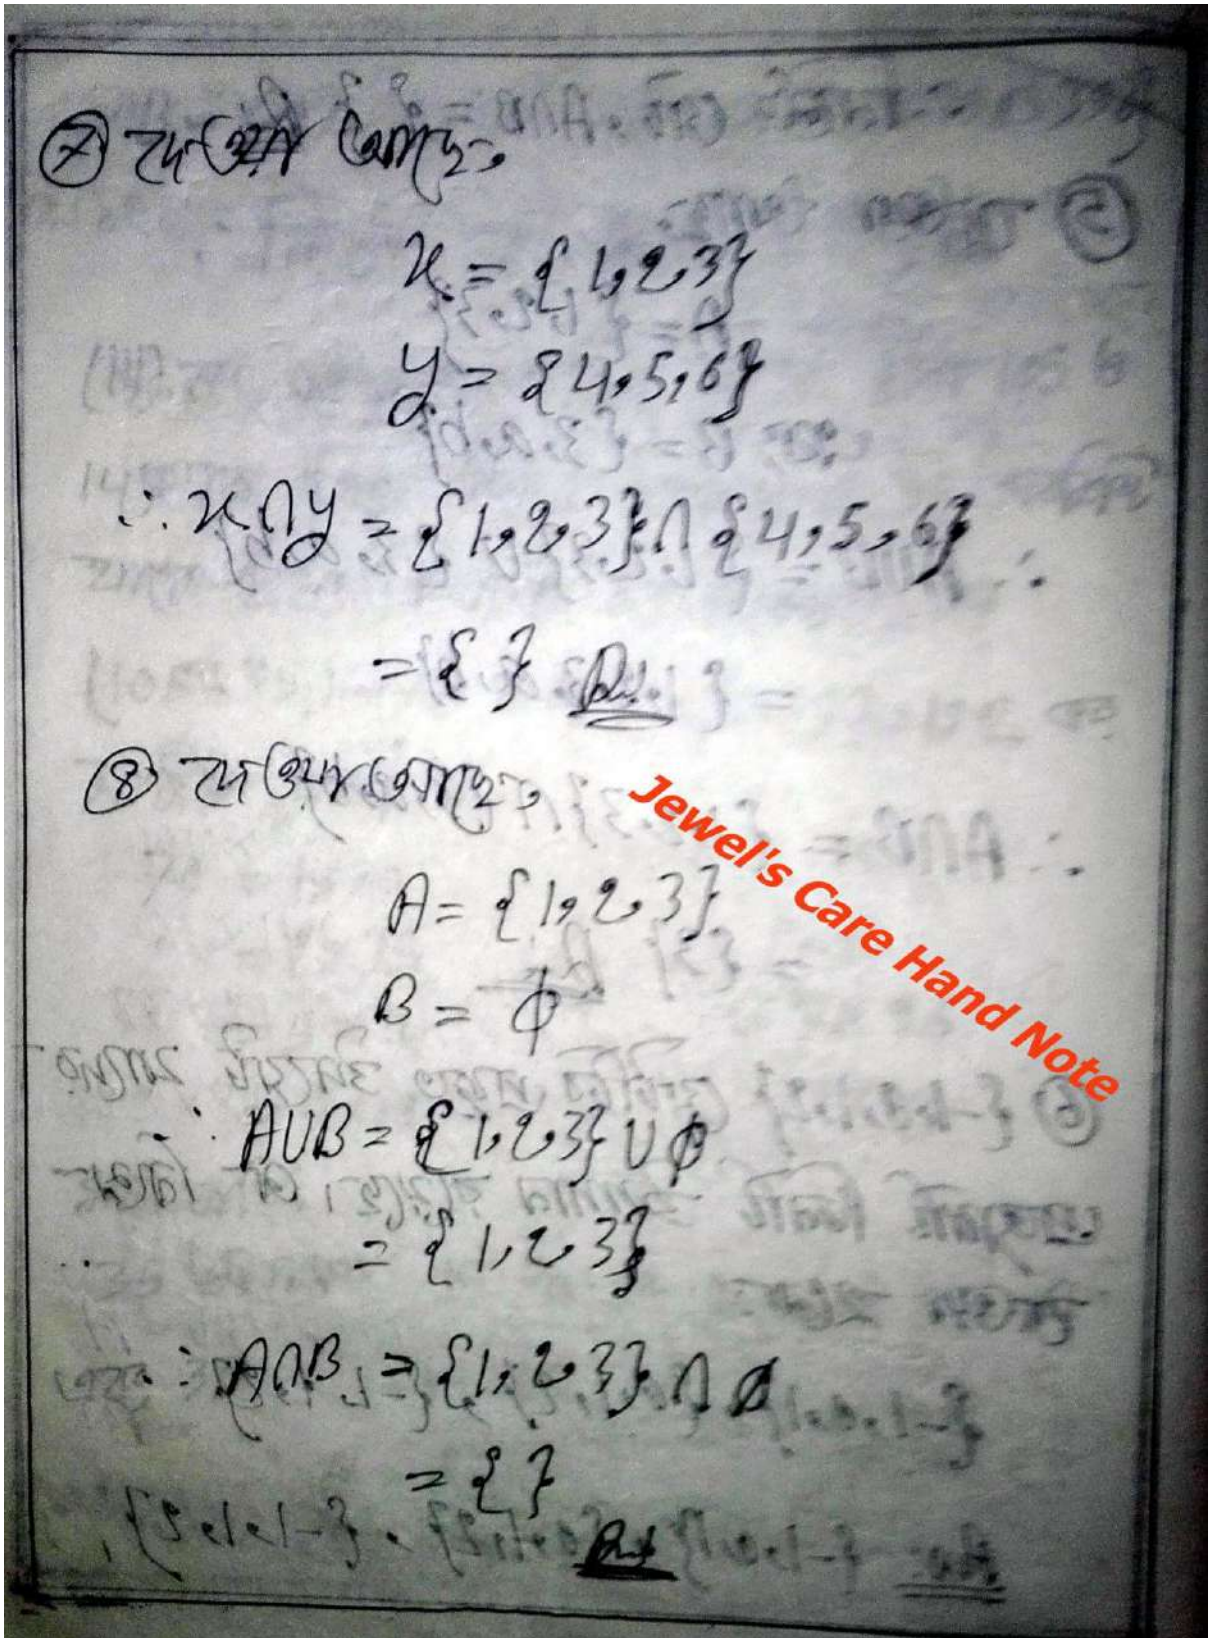 ⑦ দেওয়া আছে,
x = {1,2,3}
y = {4,5,6}
∴ x∩y = {1,2,3}∩{4,5,6}
= { } Ans.
⑧ দেওয়া আছে,
A = {1,2,3}
B = ϕ
∴ A∪B = {1,2,3} ∪ ϕ
= {1,2,3}
∴ A∩B = {1,2,3} ∩ ϕ
= { }
Ans
Jewel's Care Hand Note